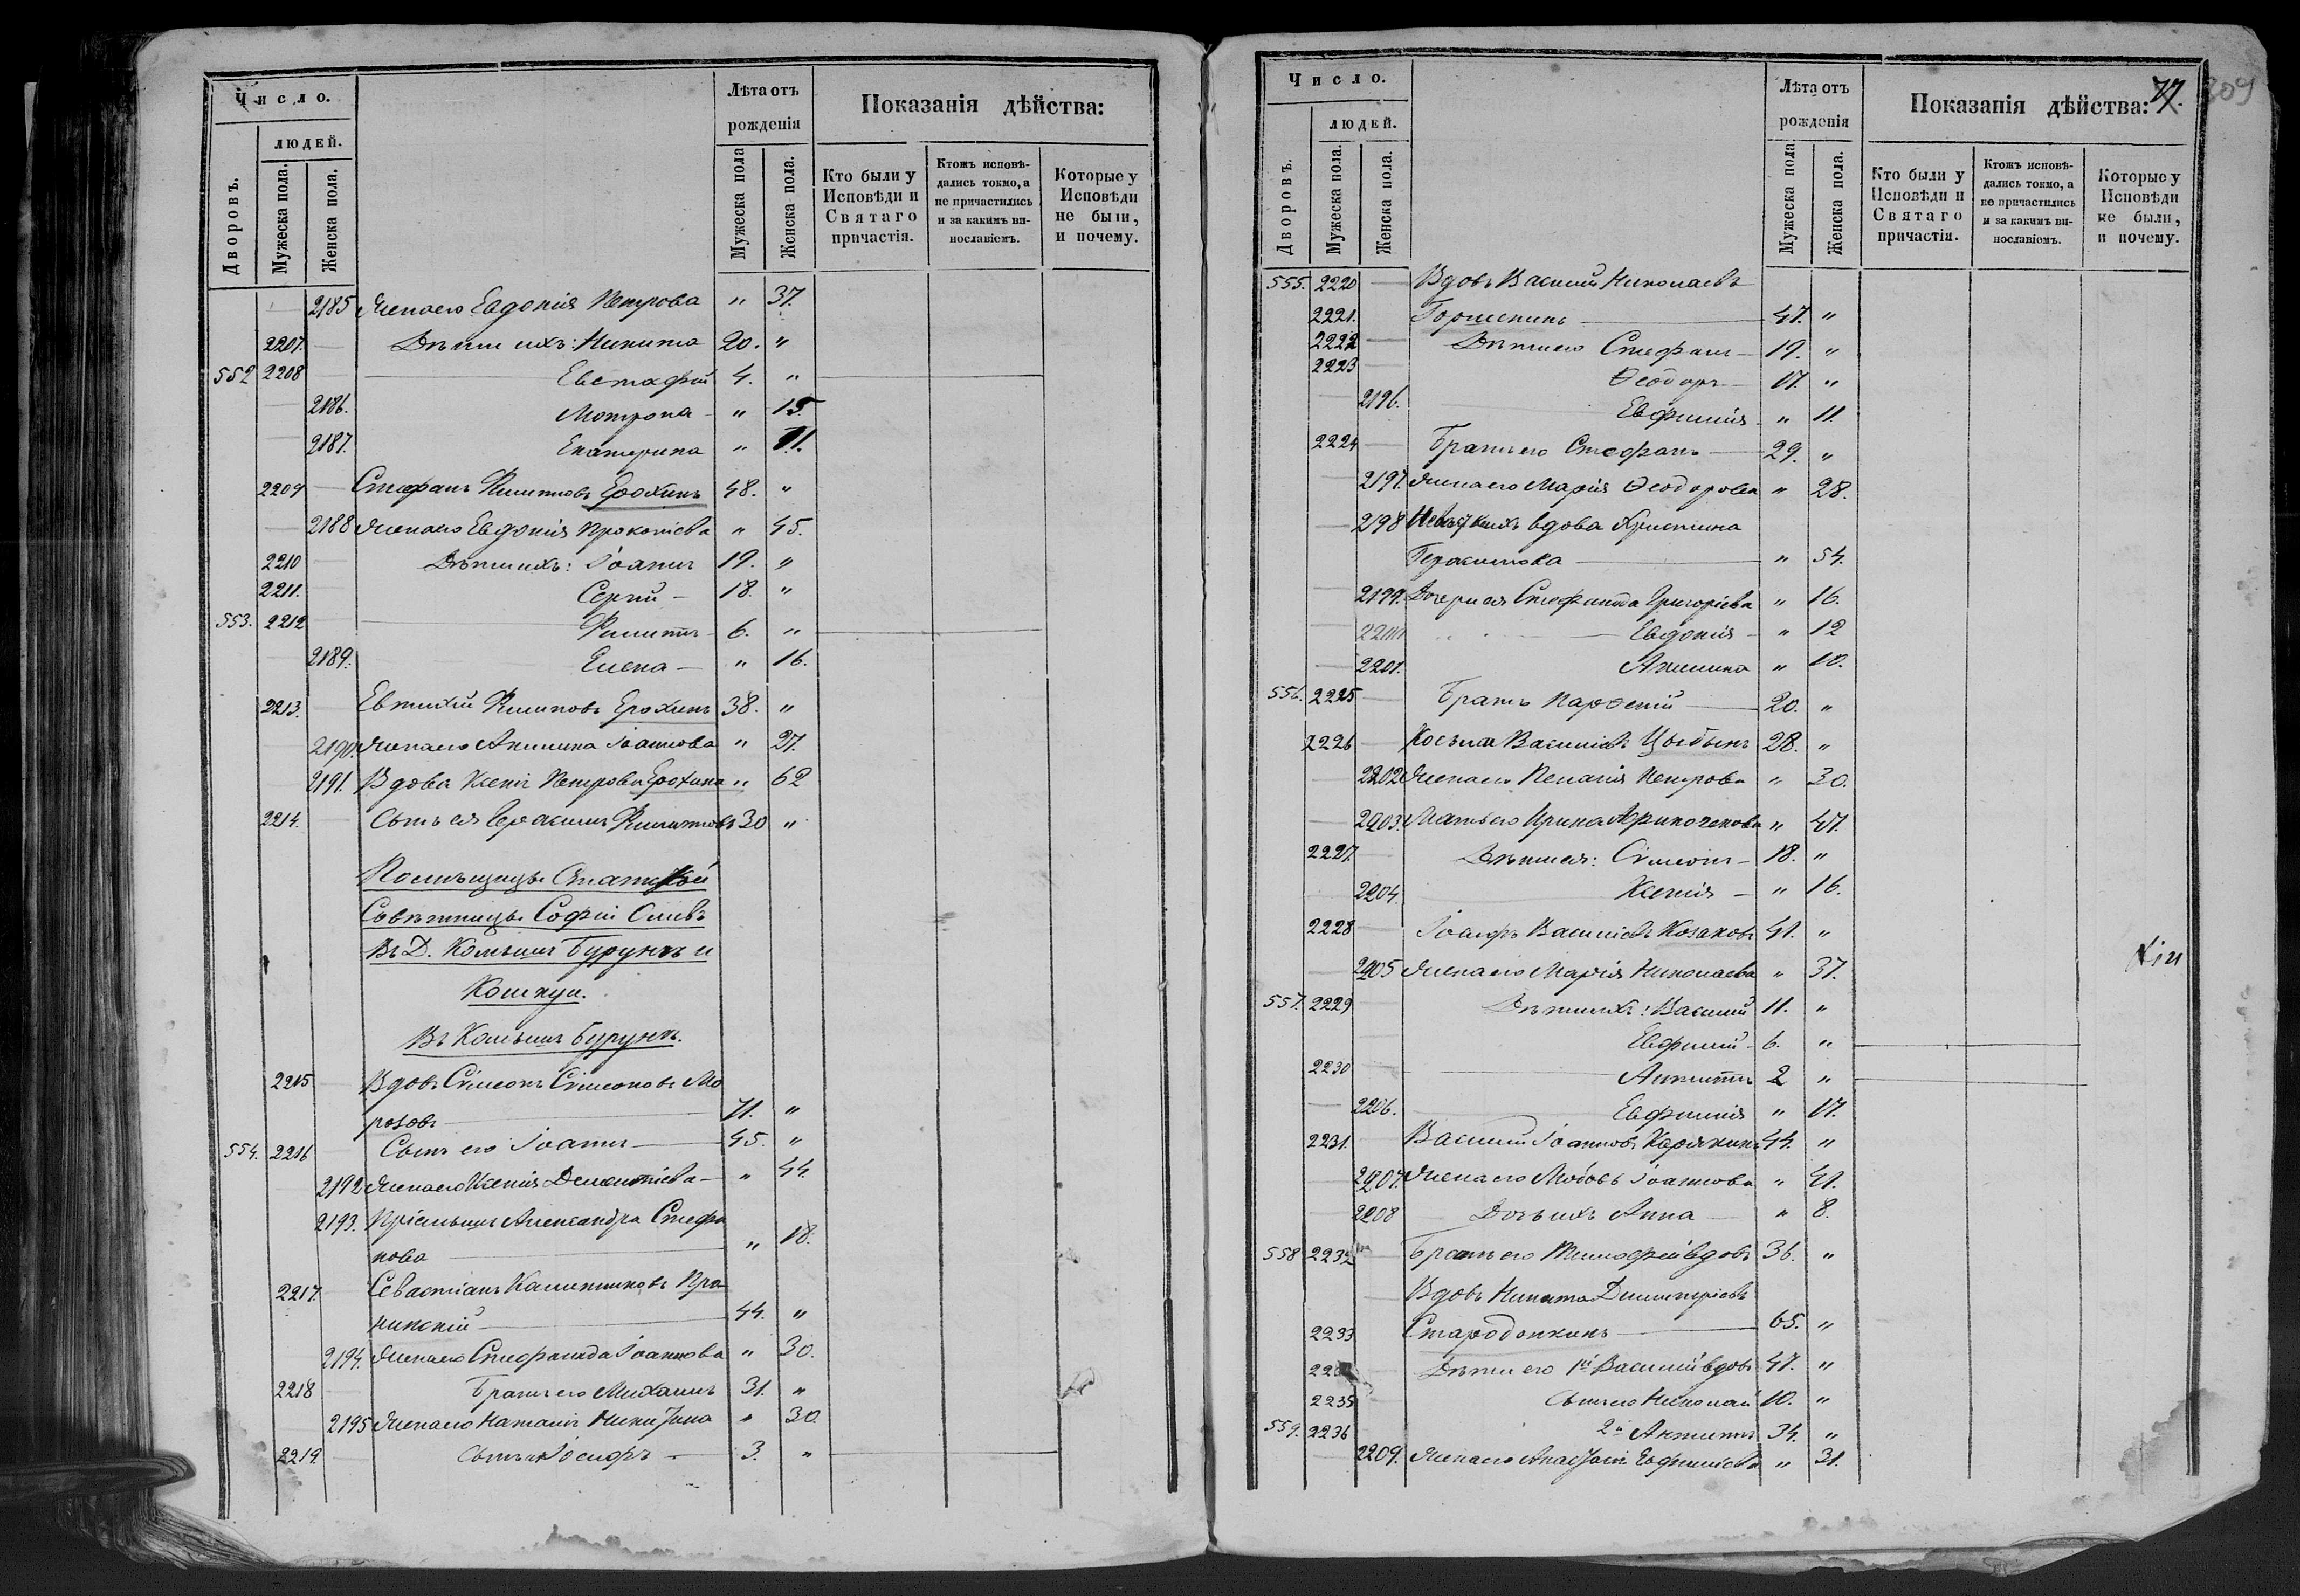 Число.
людей.
Дворовъ.
Мужеска пола.
Женска пола.
Лѣта отъ
рожденія
Мужеска пола
Женска пола.
Показанія дѣйства:
Кто были у
Исповѣди и
Святаго
причастія.
Ктожъ исповѣ-
дались токмо, а
не причастились
и за какимъ ви-
нославіемъ.
Которые у
Исповѣди
не были,
и почему.
2185 Жена его Евдокія Петрова " 37.
2207. Дѣти ихъ: Никита 20. "
552 2208 Евстафій 4. "
2186. Матрона " 15.
2187. Екатерина " 11.
2209 Стефанъ Филиповъ Ерохинъ 48. "
2188 Жена его Евдокія Прокопіева " 45.
2210 Дѣти ихъ: Іоаннъ 19. "
2211. Сергій 18. "
553. 2212 Филиппъ 6. "
2189. Елена " 16.
2213. Евтихій Филиповъ Ерохинъ 38. "
2190. Жена его Акилина Іоаннова " 27.
2191. Вдова Ксенія Петрова Ерохина " 62
2214. Сынъ ея Герасимъ Филиповъ 30 "
Помѣщицы Статской
Совѣтницы Софіи Оливъ
Въ Д. Камышъ Бурунъ и
Въ Камышъ Бурунъ.
2215 Вдовъ Сімеонъ Сімеоновъ Мо
розовъ 71. "
554. 2216 Сынъ его Іоаннъ 45. "
2192 Жена его Ксенія Дементіева " 44.
2193. Пріемышъ Александра Стефа
нова " 18.
2217. Севастіанъ
44. "
2194. Жена его Стефанида Іоаннова " 30.
2218 Братъ его Михаилъ 31. "
2195 Жена его Наталія Никитина " 30.
2219. Сынъ ихъ Іосифъ 3. "
77. 309
Число.
людей.
Дворовъ.
Мужеска пола.
Женска пола.
Лѣта отъ
рожденія
Мужеска пола
Женска пола.
Показанія дѣйства:
Кто были у
Исповѣди и
Святаго
причастія.
Ктожъ исповѣ-
дались токмо, а
не причастились
и за какимъ ви-
нославіемъ.
Которые у
Исповѣди
не были,
и почему.
555. 2220 Вдовъ Василій Николаевъ
2221. 47. "
2222 Дѣти его Стефанъ 19. "
2223 Ѳеодоръ 17. "
2196. Евфимія " 11.
2224 Братъ его Стефанъ 29. "
2197. Жена его Марія Ѳеодорова " 28.
2198 вдова Христина
Герасимова " 54.
2199. Дочери ея Стефанида Григоріева " 16.
Евдокія " 12
2201. Акилина " 10.
556. 2225 Братъ Парѳеній 20. "
2226 Косьма Василіевъ Цыбинъ 28. "
2202 Жена его Пелагія Петрова " 30.
2203. Мать его Ирина " 47.
2227. Дѣти ея: Сімеонъ 18. "
2204. Ксенія " 16.
2228 Іосифъ Василіевъ Козаковъ 41. "
2205 Жена его Марія Николаева " 37.
557. 2229 Дѣти ихъ: Василій 11. "
Евфимій 6. "
2230 Антипъ 2 "
2206. Евфимія " 17.
2231. Василій Іоанновъ Карякинъ 44. "
2207. Жена его Любовь Іоаннова " 41.
2208 Дочь ихъ Анна " 8.
558 2232 Братъ его Тимофей вдовъ 36. "
Вдовъ Никита Димитріевъ
2233 65. "
Дѣти его 1й Василій вдовъ 47. "
2235 Сынъ его Николай 10. "
559. 2236 2й Антипъ 34. "
2209. Жена его Анастасія Евфиміева " 31.